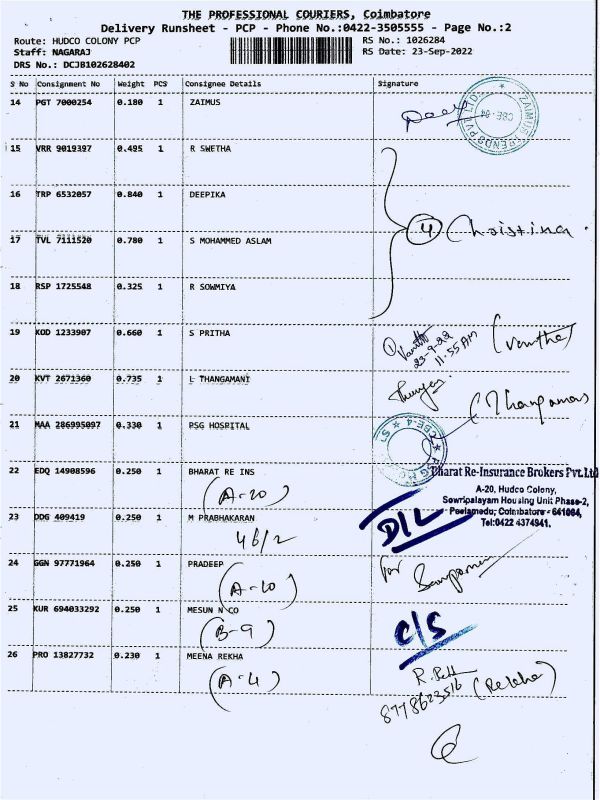 THE PROFESSIONAL COURIERS, Coimbatore
Delivery Runsheet - PCP - Phone No.:0422-3505555 - Page No.:2
Route: HUDCO COLONY PCP
RS No.: 1026284
Staff: NAGARAJ
RS Date: 23-Sep-2022
DRS No.: DCJB102628402
S No Consignment No Weight PCS Consignee Details Signature
14 PGT 7000254 0.180 1 ZAIMUS
15 VRR 9019397 0.495 1 R SWETHA
16 TRP 6532057 0.840 1 DEEPIKA
4 Christina
17 TVL 7111520 0.780 1 S MOHAMMED ASLAM
18 RSP 1725548 0.325 1 R SOWMIYA
19 KOD 1233907 0.660 1 S PRITHA
23-9-22
11.55AM
20 KVT 2671360 0.735 1 L THANGAMANI
21 MAA 286995097 0.330 1 PSG HOSPITAL
22 EDQ 14908596 0.250 1 BHARAT RE INS
(A-20)
Bharat Re-Insurance Brokers Pvt.Ltd
A-20, Hudco Colony,
Sowripalayam Housing Unit Phase-2,
Peelamedu, Coimbatore - 641004,
Tel:0422 4374941.
23 DDG 409419 0.250 1 M PRABHAKARAN
46/2
D/L
24 GGN 97771964 0.250 1 PRADEEP
(A-10)
for
25 KUR 694033292 0.250 1 MESUN N CO
(B-9)
C/S
26 PRO 13827732 0.230 1 MEENA REKHA
(A-4)
8778623516 (Rekha)